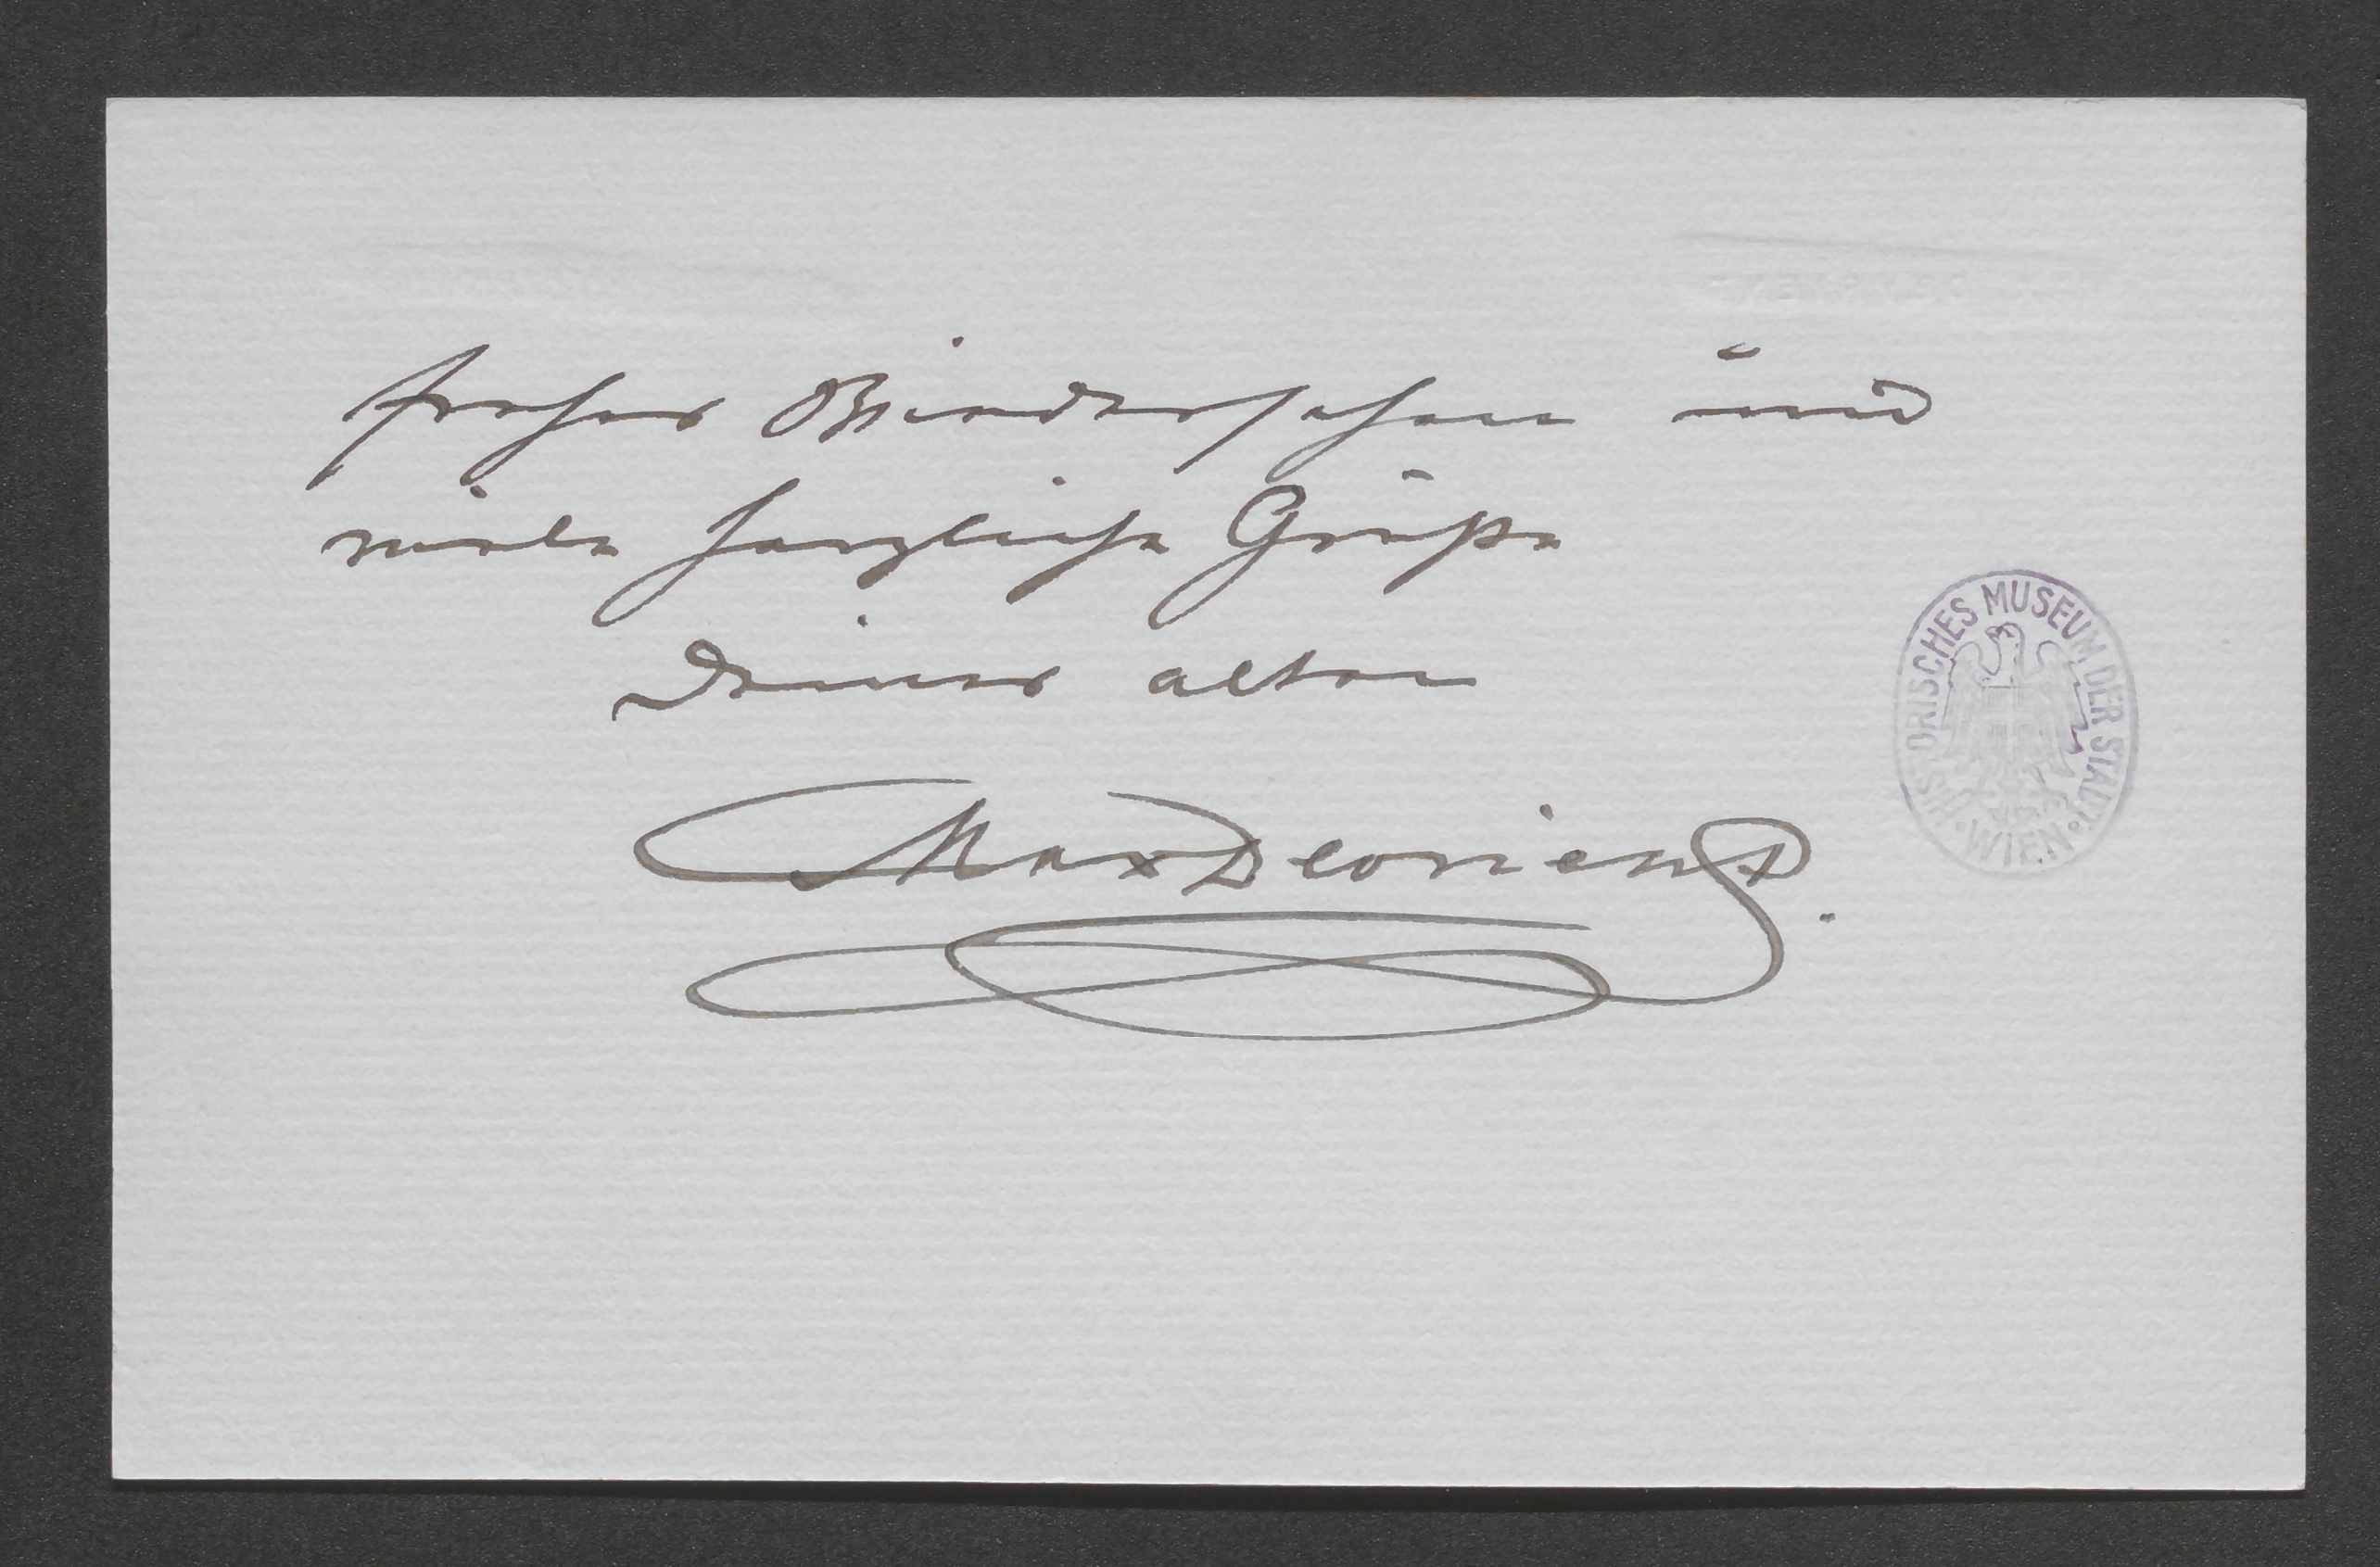 frohes Wiedersehen und
viele herzliche Grüße
Deines alten
Max Devrient.
HISTORISCHES MUSEUM DER STADT WIEN